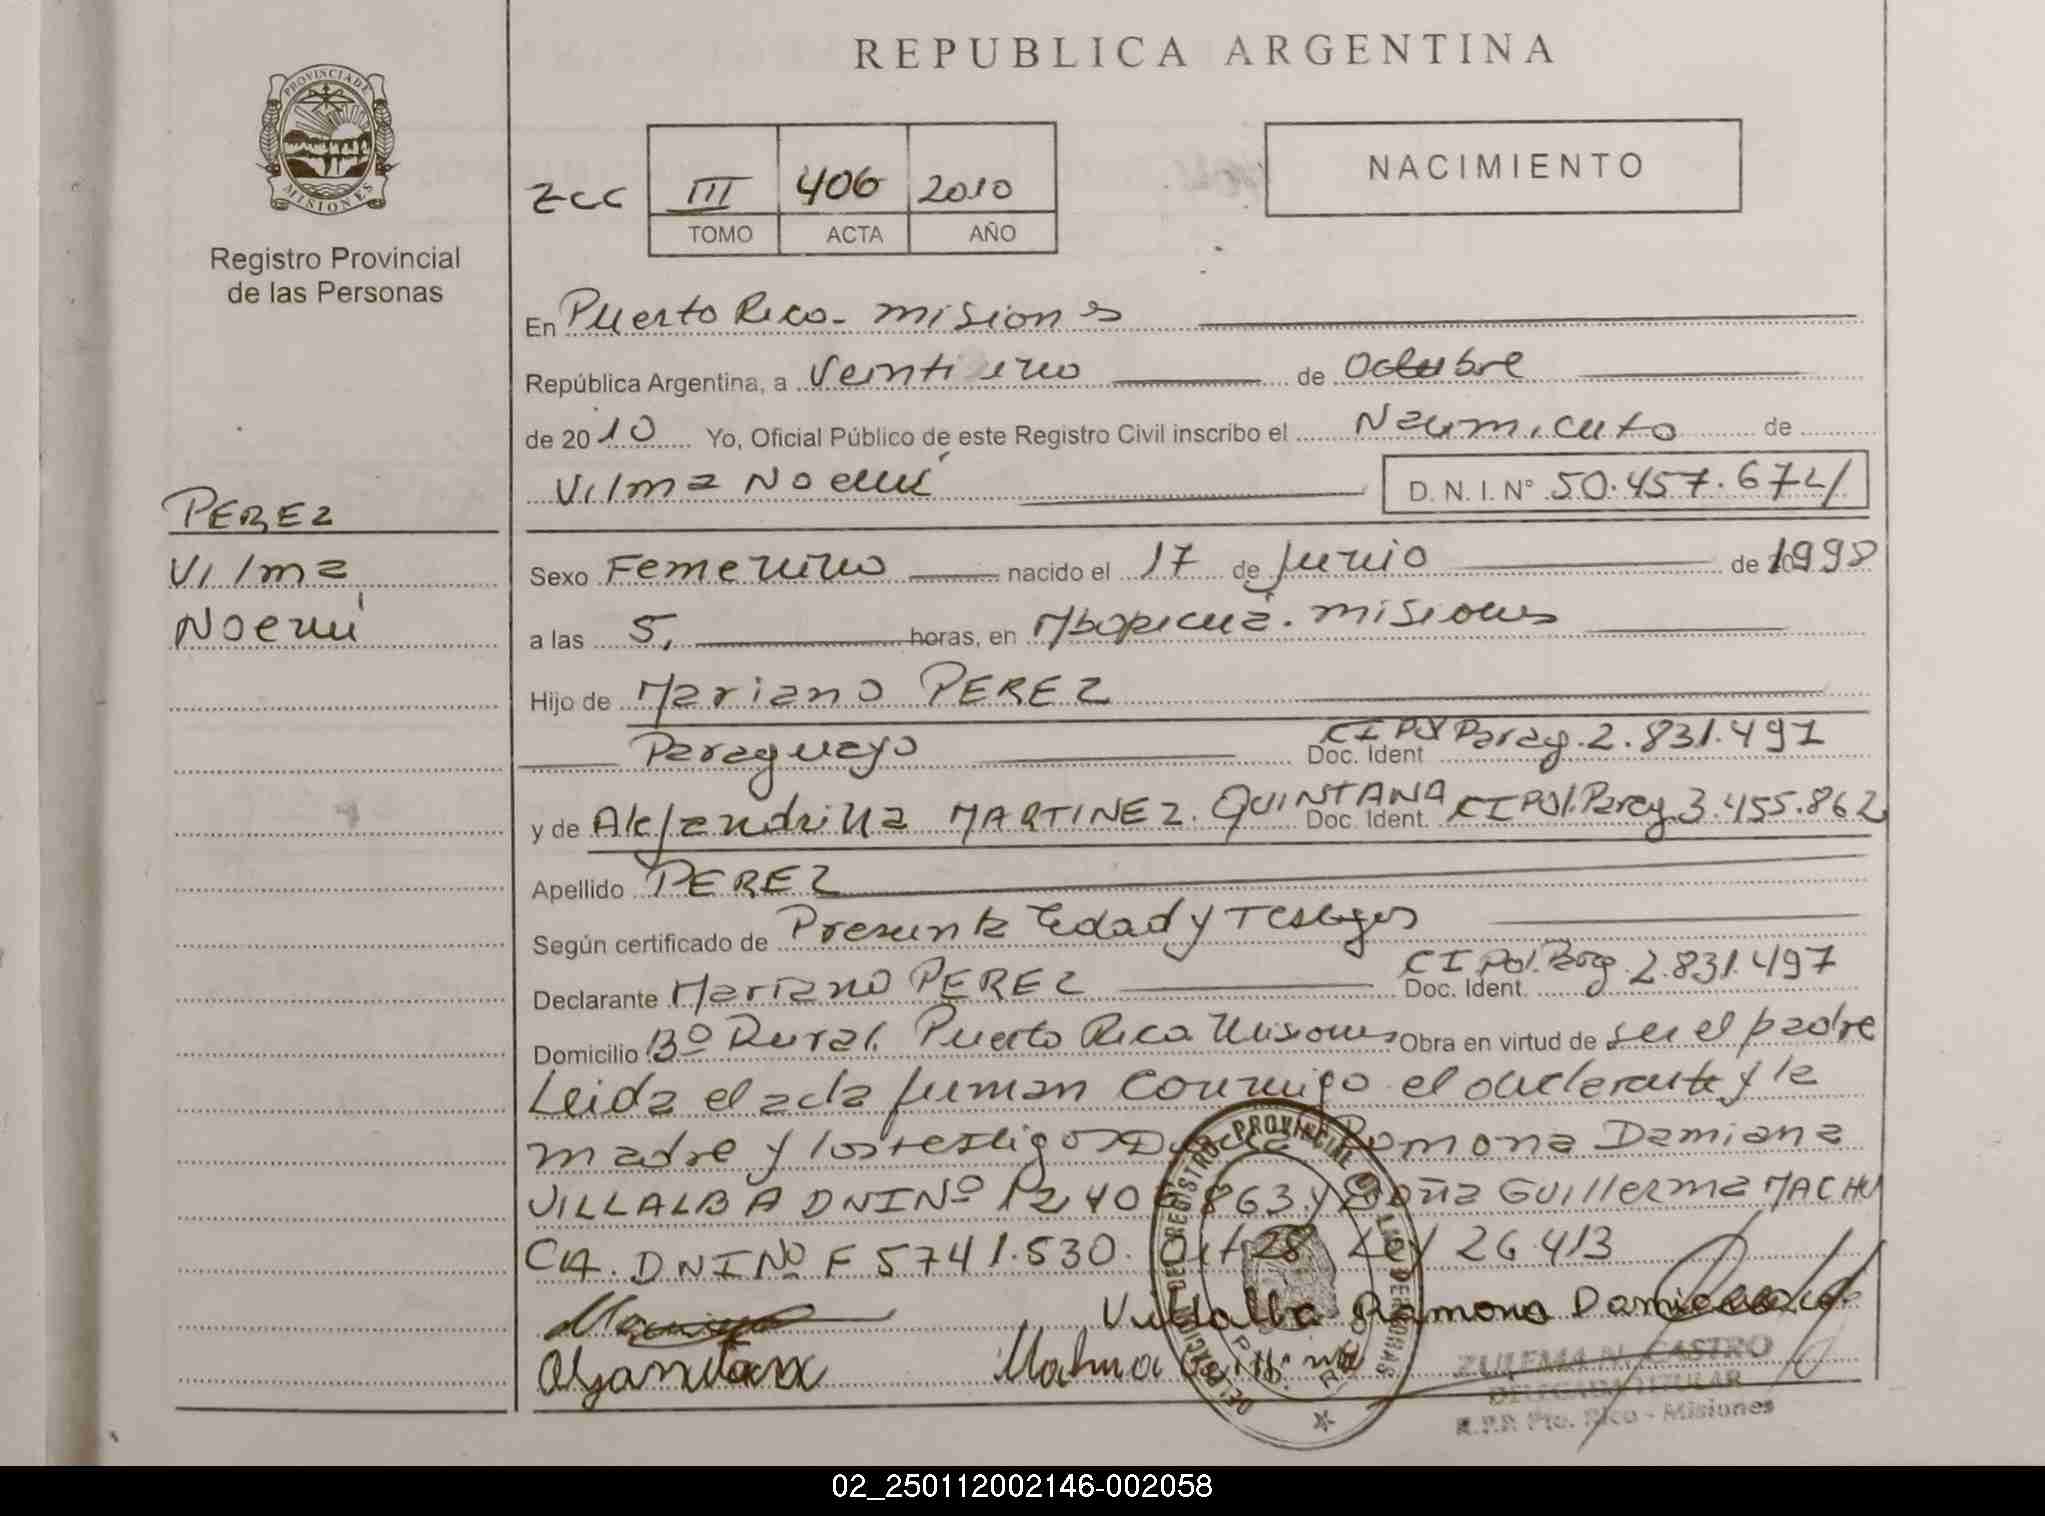 REPUBLICA ARGENTINA
PROVINCIA DE
MISIONES
Registro Provincial
de las Personas
ZCC III 406 2010
TOMO ACTA AÑO
NACIMIENTO
En Puerto Rico - misiones
República Argentina, a Veintiuno de Octubre
de 2010 Yo, Oficial Público de este Registro Civil inscribo el Nacimiento de
Vilma Noemí D. N. I. N° 50.457.674/
PEREZ
Vilma
Noemí
Sexo Femenino nacido el 17 de Junio de 1998
a las 5, horas, en Mbopicuá. misiones
Hijo de Mariano PEREZ
Paraguayo Doc. Ident CI Pol Parag. 2.831.497
y de Alejandrina MARTINEZ. QUINTANA Doc. Ident. CI Pol. Parag. 3.455.862
Apellido PEREZ
Según certificado de Presunta Edad y Testigos
Declarante Mariano PEREZ Doc. Ident. CI Pol. Parg. 2.831.497
Domicilio Bº Rural. Puerto Rico Misiones Obra en virtud de ser el padre
Leida el acta firman conmigo el declarante y la
madre y los testigos Doña Ramona Damiana
VILLALBA DNI Nº 12.40 863 y Doña Guillerma MACHU
CA. DNI Nº F 5741.530. Art 28 Ley 26.413
Villalba Ramona Damiana
DELEGACION DEL REGISTRO PROVINCIAL DE LAS PERSONAS
ZULEMA N. CASTRO
DELEGADA TITULAR
R.P.P. Pto. Rico - Misiones
02_250112002146-002058